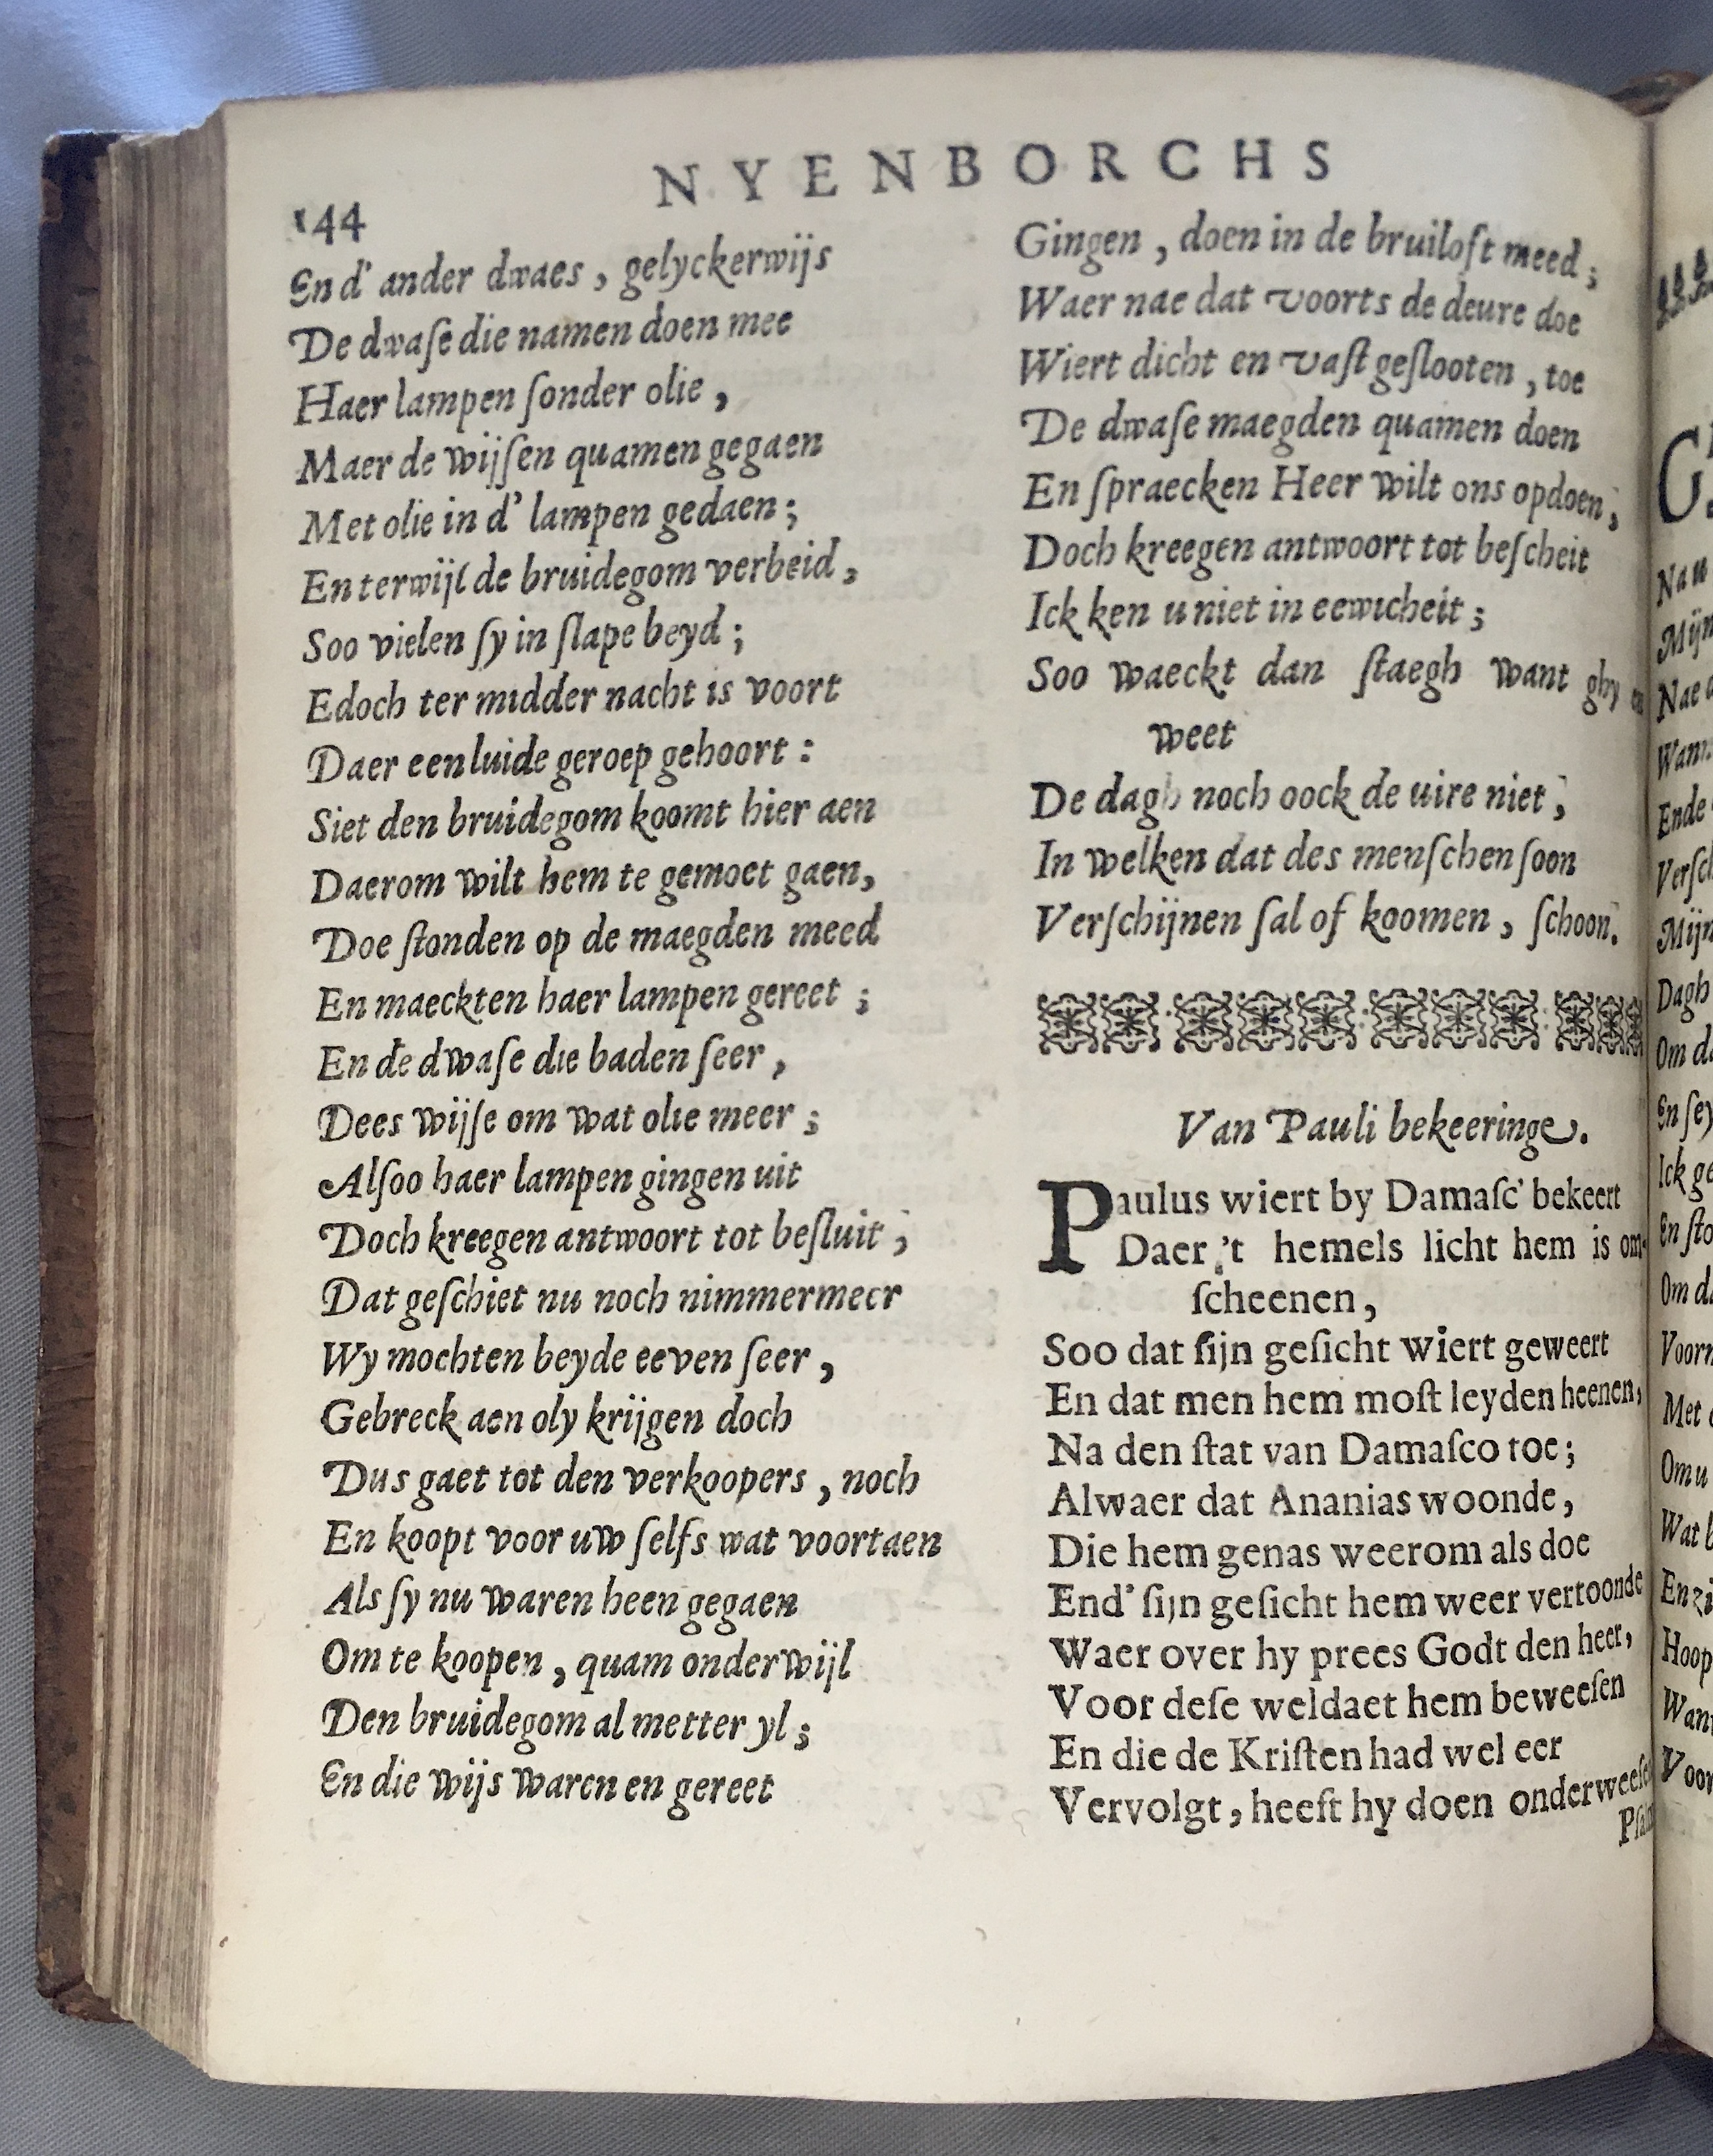 NYENBORCHS
144
En d' ander dwaes, gelyckerwijs
De dwaſe die namen doen mee
Haer lampen ſonder olie,
Maer de wijſen quamen gegaen
Met olie in d' lampen gedaen;
En terwijl de bruidegom verbeid,
Soo vielen ſy in ſlape beyd;
Edoch ter midder nacht is voort
Daer een luide geroep gehoort:
Siet den bruidegom koomt hier aen
Daerom wilt hem te gemoet gaen,
Doe ſtonden op de maegden meed
En maeckten haer lampen gereet;
En de dwaſe die baden ſeer,
Dees wijſe om wat olie meer;
Alſoo haer lampen gingen uit
Doch kreegen antwoort tot beſluit,
Dat geſchiet nu noch nimmermeer
Wy mochten beyde eeven ſeer,
Gebreck aen oly krijgen doch
Dus gaet tot den verkoopers, noch
En koopt voor uw ſelfs wat voortaen
Als ſy nu waren heen gegaen
Om te koopen, quam onderwijl
Den bruidegom al metter yl;
En die wijs waren en gereet
Gingen, doen in de bruiloft meed;
Waer nae dat voorts de deure doe
Wiert dicht en vaſt geſlooten, toe
De dwaſe maegden quamen doen
En ſpraecken Heer wilt ons opdoen,
Doch kreegen antwoort tot beſcheit
Ick ken u niet in eewicheit;
Soo waeckt dan ſtaegh want ghy en
weet
De dagh noch oock de uire niet,
In welken dat des menſchen ſoon
Verſchijnen ſal of koomen, ſchoon.
Van Pauli bekeeringe.
Paulus wiert by Damaſc' bekeert
Daer 't hemels licht hem is om-
ſcheenen,
Soo dat ſijn geſicht wiert geweert
En dat men hem moſt leyden heenen,
Na den ſtat van Damaſco toe;
Alwaer dat Ananias woonde,
Die hem genas weerom als doe
End' ſijn geſicht hem weer vertoonde
Waer over hy prees Godt den heer,
Voor deſe weldaet hem beweeſen
En die de Kriſten had wel eer
Vervolgt, heeft hy doen onderweeſen
Nau
Mijn
Nae
Wann
Ende
Verſch
Mijn
Dagh
Om da
En ſey
Ick ge
En ſto
Om da
Voorn
Met
Om u
Wat
En zi
Hoop
Want
Voor